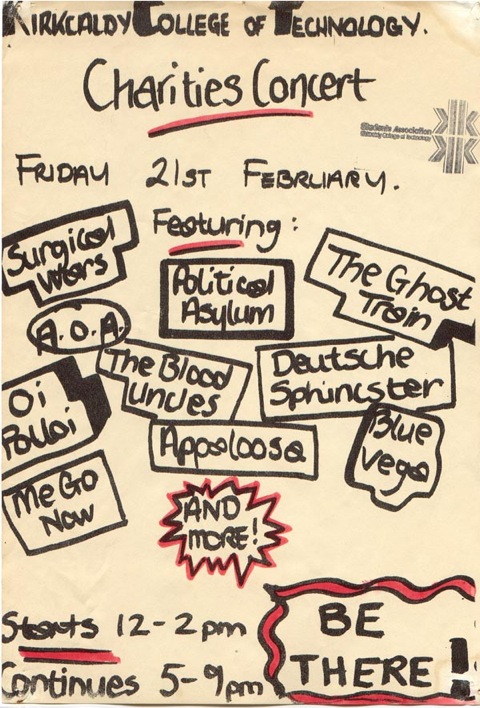 KIRKCALDY COLLEGE OF TECHNOLOGY.
Charities Concert
Students Association
Kirkcaldy College of Technology
FRIDAY 21ST FEBRUARY.
Featuring:
Surgical
Wars
Political
Asylum
The Ghost
Train
A.O.A.
The Blood
Uncles
Deutsche
Sphincster
Oi
Polloi
Appaloosa
Blue
Vega
Me Go
Now
AND
MORE!
Starts 12-2pm
Continues 5-9pm
BE
THERE!